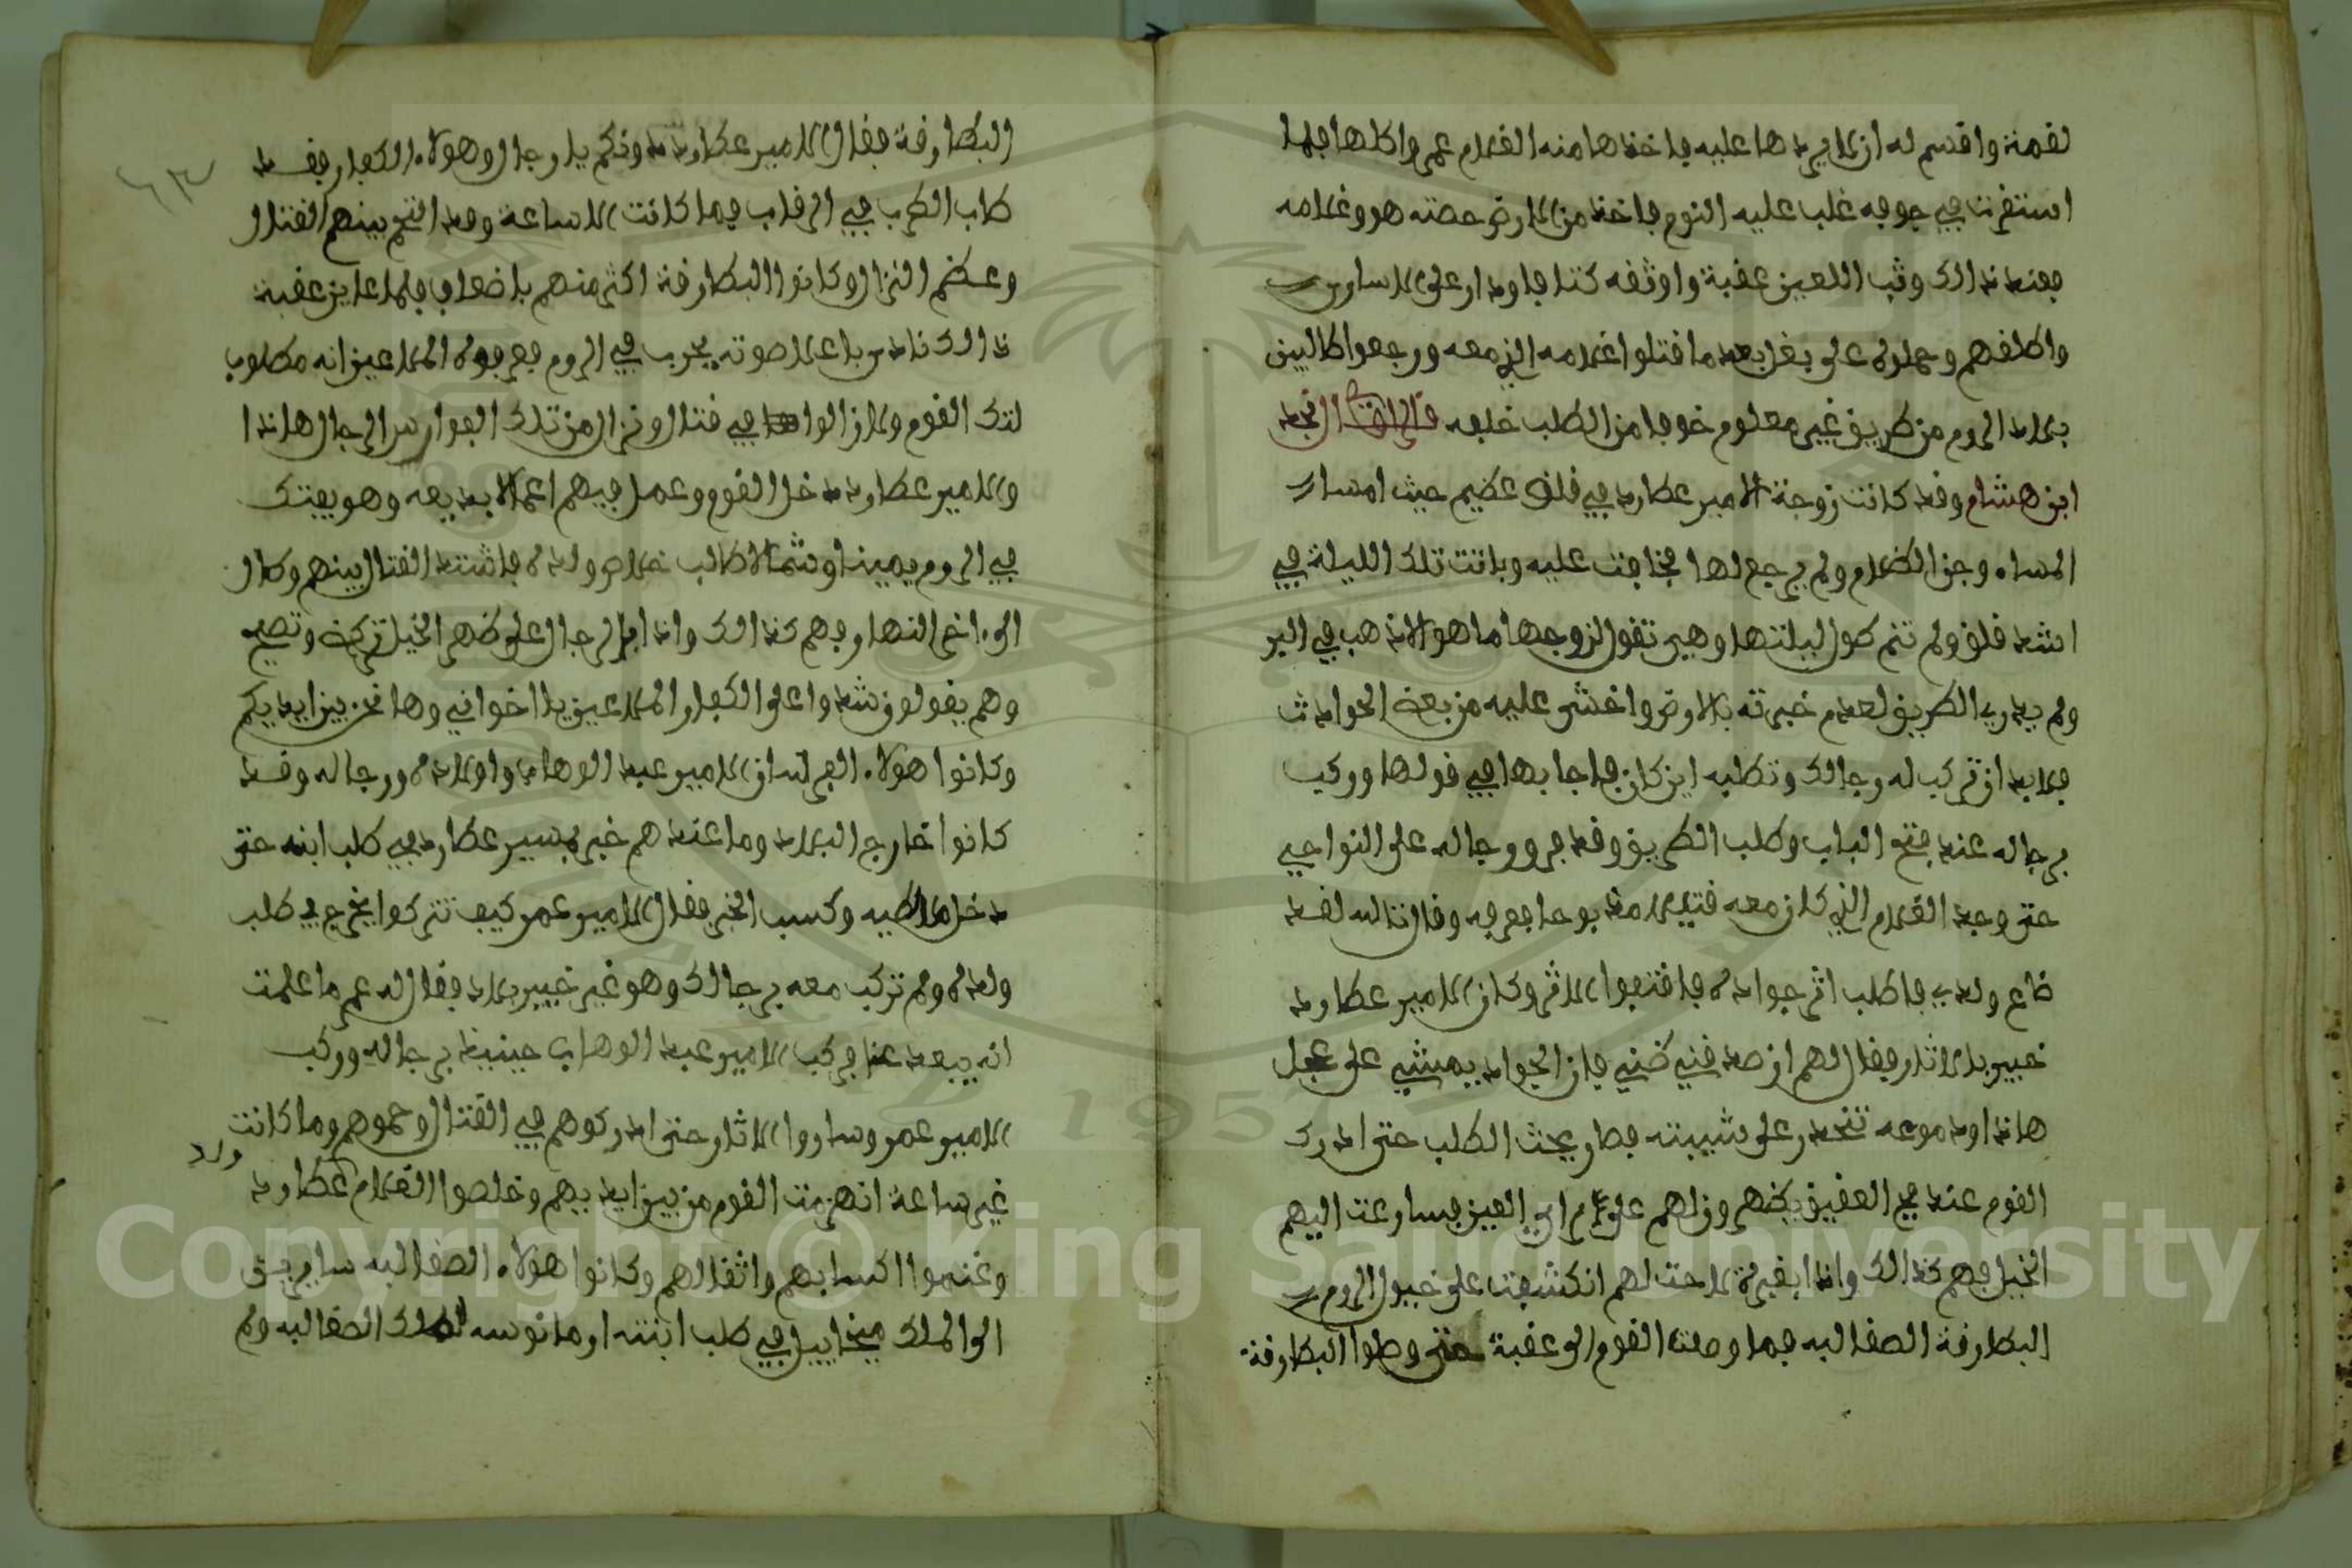 لقمة واقسم له ان لا يردها عليه فاخذها منه الغلام عمر واكلها فلما
استقرت في جوفه غلب عليه النوم فاخذ من الارض حصته هو وغلامه
فعند ذالك وثب اللعين عقبة واوثقه كتافا ودار على الاساري
واطلقهم وحملوه على بغل بعد ما قتلوا غلامه الذي معه ورجعوا طالبين
بلاد الروم من طريق غير معلوم خوفا من الطلب خلفه قال نجد
ابن هشام وقد كانت زوجة الامير عطارد في قلق عظيم حيث امسا
المساء وجن الظلام ولم يرجع لها فخافت عليه وباتت تلك الليلة في
اشد قلق ولم تنم طول ليلتها وهي تقول لزوجها ما هو الا ذهب في البر
ولم يدري الطريق لعدم خبرته بالارض واخشى عليه من بعض الحوادث
فلا بد ان تركب له رجالك وتطلبه اين كان فاجابها في قولها وركب
برجاله عند فتح الباب وطلب الطريق وقد فرو رجاله على النواحي
حتى وجد الغلام الذي كان معه قتيلا مذبوحا فعرفه وقال تالله لقد
ضاع ولدي فاطلب اثر جواده فاقتفوا الاثر وكان الامير عطارد
خبير بالاثار فقال لهم ان صدقني ظني فان الجواد يمشي على عجل
هاذا ودموعه تنحدر على شيبته فصار يحث الطلب حتى ادرك
القوم عند العقيق بظهر وزلهم على ام العين فسارعت اليهم
الخيل فهم كذالك واذا بغبرة لاحت لهم انكشفت على خيول الروم
البطارقة الصقالبه فما وصلت القوم الى عقبة حتى وصلوا البطارقة
البطارقة فقال الامير عطارد دونكم يا رجال وهولاء الكفار فقد
طاب الضرب في الرقاب فما كانت الا ساعة وقد التحم بينهم القتال
وعظم النزال وكانوا البطارقة اكثر منهم باضعاف فلما عاين عقبة
ذالك نادى باعلا صوته يحرب في الروم فعرفوه الملاعين انه مطلوب
لتلك القوم ولازالوا في قتال ونزال من تلك الفوارس الرجال هاذا
والامير عطارد دخل القوم وعمل فيهم اعمالا بديعه وهو يفتك
في الروم يمينا وشمالا طالب خلاص ولده فاشتد القتال بينهم وطال
الى اخر النهار فهم كذالك واذا بالرجال على ظهر الخيل تركض وتصيح
وهم يقولون شدوا على الكفار الملاعين يا اخواني وها نحن بين ايديكم
وكانوا هولاء الفرسان الامير عبد الوهاب واولاده ورجاله وقد
كانوا خارج البلاد وما عندهم خبر بمسير عطارد في طلب ابنه حتى
دخل ملاطيه وكسب الخبر فقال الامير عمر كيف تتركوا يخرج في طلب
ولده ولم تركب معه برجالك وهو غير خبير بلاد فقال له عمر ما علمت
انه يبعد عنا فركب الامير عبد الوهاب حينيذ برجاله وركب
الامير عمر وساروا الاثار حتى ادركوهم في القتال وحموهم وما كانت
غير ساعة انهزمت القوم من بين ايديهم وخلصوا الغلام ولد عطارد
وغنموا اكسابهم واثقالهم وكانوا هولاء الصقالبه سايرين
الى الملك ميخاييل في طلب ابنته ارمانوسه لملك الصقالبه ولم